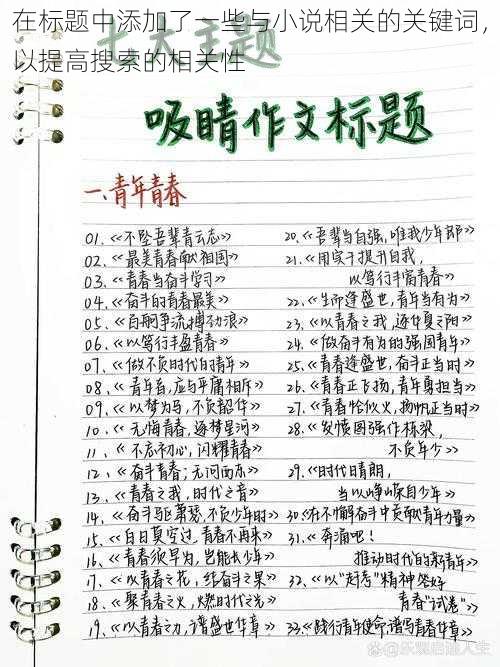 在标题中添加了一些与小说相关的关键词，
以提高搜索的相关性
七大主题
吸睛作文标题
一、青年青春
01.《不坠吾辈青云志》
02.《最美青春献祖国》
03.《青春当奋斗学习》
04.《奋斗的青春最美》
05.《百舸争流搏劲浪》
06.《以笃行丰盈青春》
07.《做不负时代的青年》
08.《青年者,应与平庸相斥》
09.《以梦为马,不负韶华》
10.《无悔青春,逐梦星河》
11、《不忘初心,闪耀青春》
12、《奋斗青春;无问西东》
13.《青春之我,时代之音》
14.《奋斗马蹄萧瑟,不负少年时》
15.《白日莫空过,青春不再来》
16.《青春须早为,岂能长少年》
17.《以青春之花,结奋斗之果》
18.《聚青春之火,燃时代之光》
19.《以青春之力,谱盛世华章》
20.《吾辈当自强,唯我少年郎》
21.《用实干提升自我,
以笃行丰富青春》
22.《生而逢盛世,青年当有为》
23.《以青春之我,逐华夏之阳》
24.《做奋斗有为的强国青年》
25.《青春逢盛世,奋斗正当时》
26.《青春正飞扬,青年勇担当》
27.《青春恰似火,扬帆正当时》
28.《发愤图强作栋梁,
不负年少》
29.《时代日晴朗,
当以峥嵘自少年》
30《在不懈奋斗中贡献青年力量》
31.《奔涌吧!
推动时代的新青年》
32.《以“赶考”精神答好
青春“试卷”》
33.《践行青年使命,谱写青春华章》